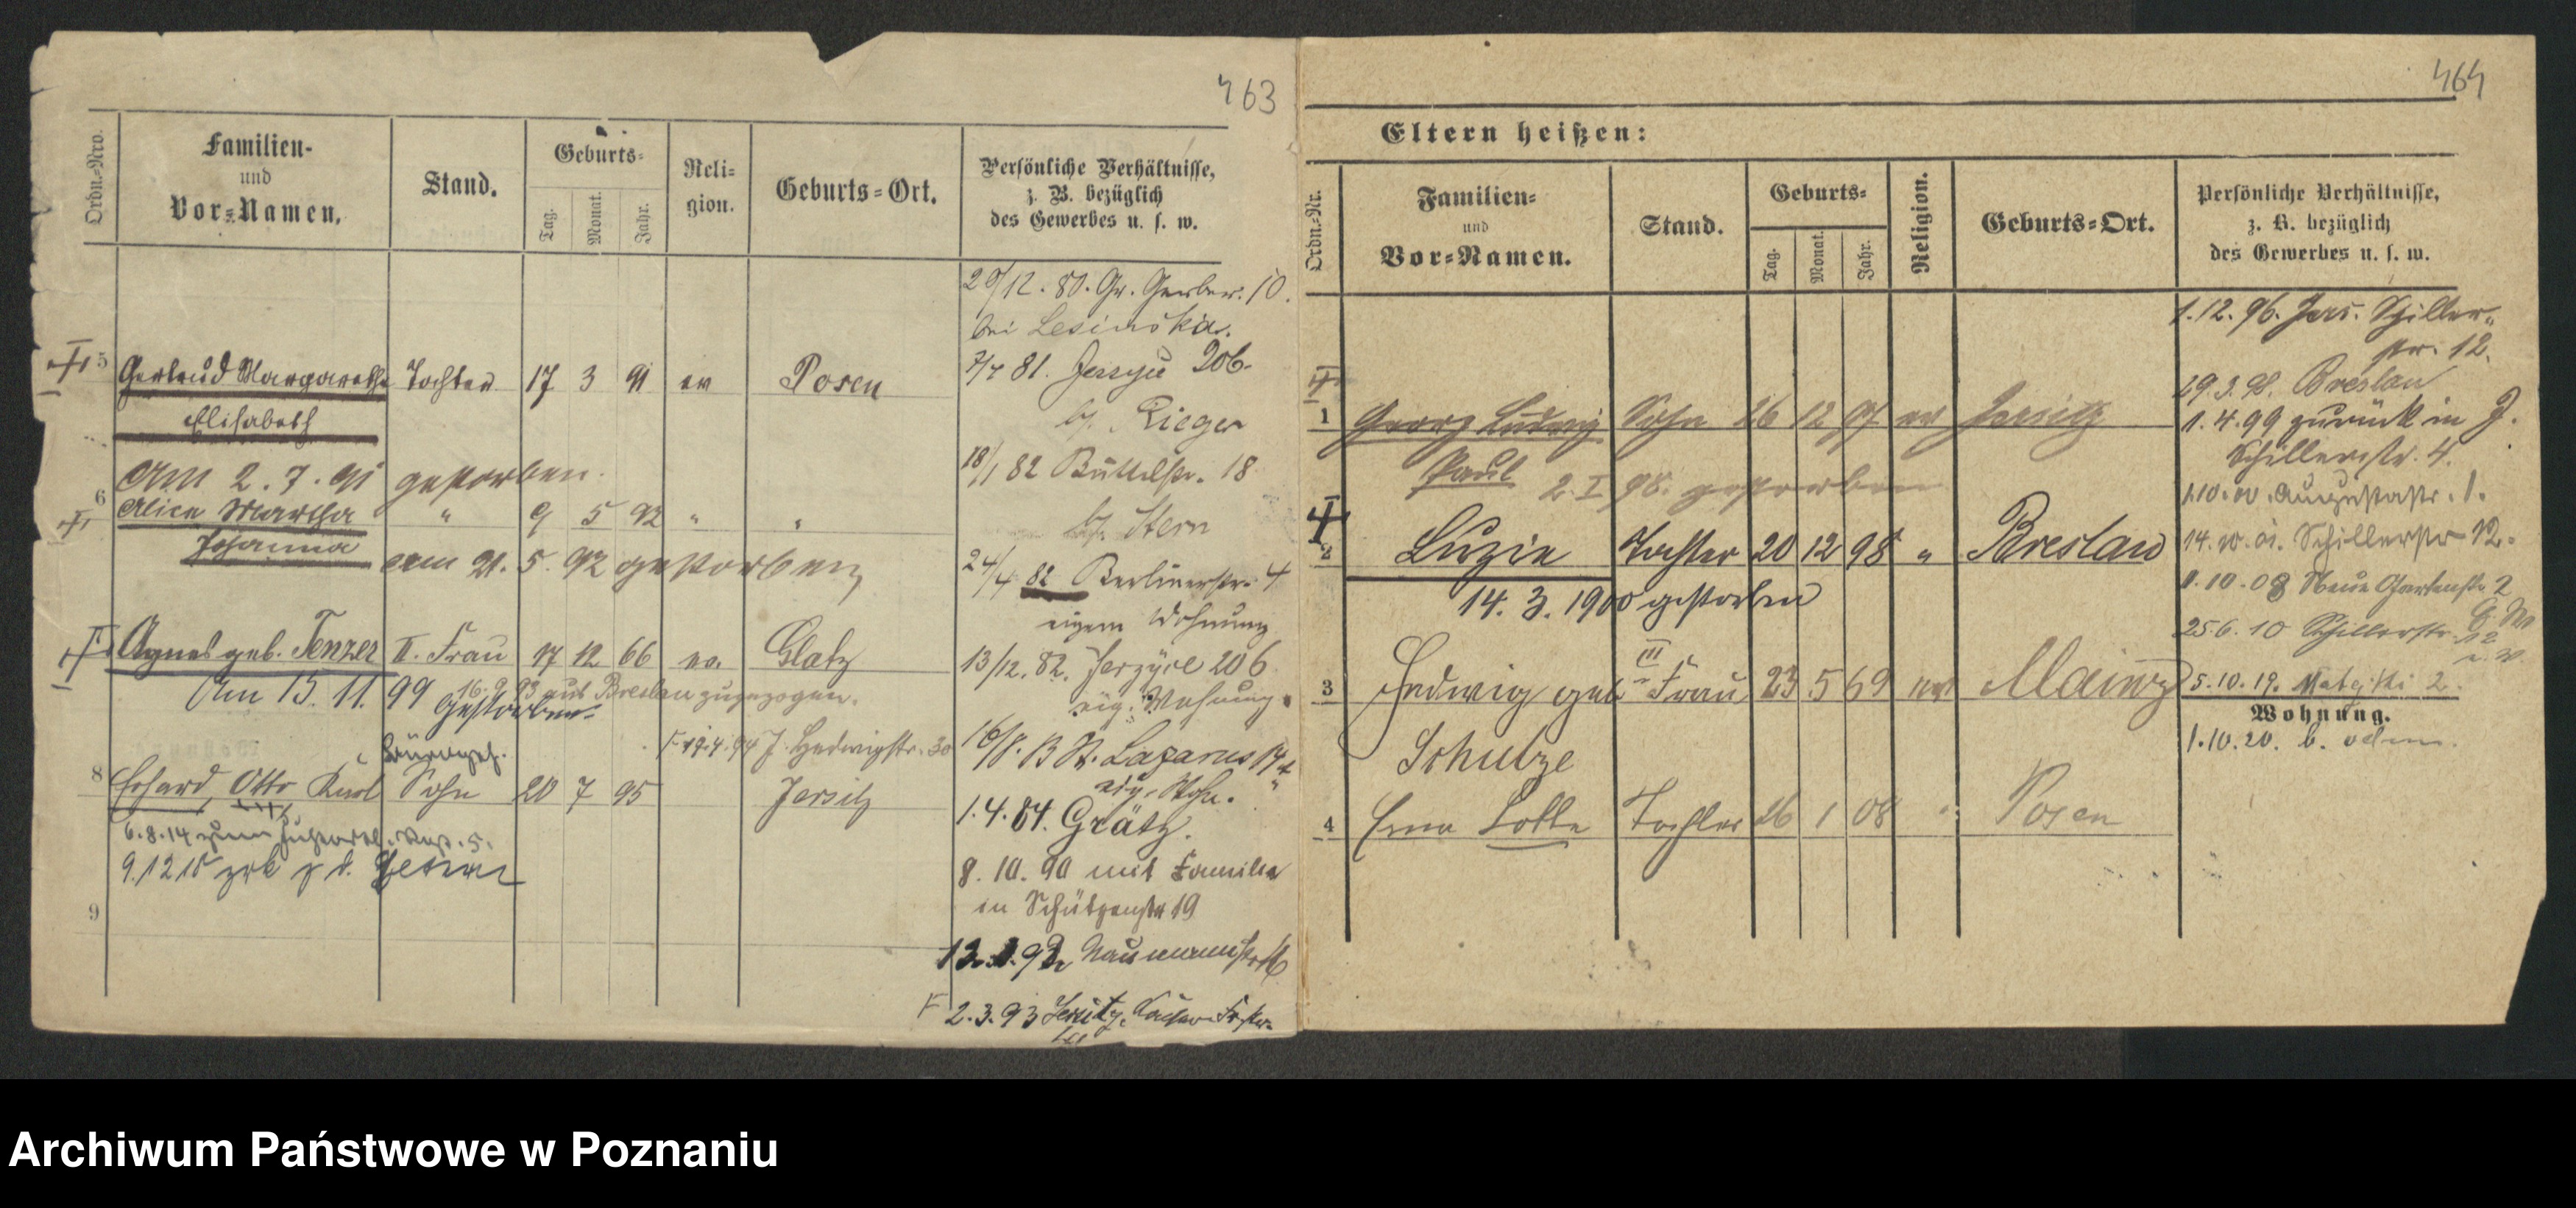 463
Ordn.-Nro.
Familien-
und
Vor-Namen.
Stand.
Geburts-
Tag.
Monat.
Jahr.
Reli-
gion.
Geburts-Ort.
Persönliche Verhältnisse,
z. B. bezüglich
des Gewerbes u. s. w.
5 Gertrud Margarethe Tochter 17 3 91 ev Posen
Elisabeth
Am 2. 7. 91 gestorben.
6 Alice Martha " 9 5 92 " "
Johanna
am 21. 5. 92 gestorben
Agnes geb. Tenzer II. Frau 17 12 66 ev. Glatz
Am 15. 11. 99 gestorben.
16. 9. 93 aus Breslau zugezogen.
19.4.94 J. Hedwigstr. 30
8 Erhard, Otto Karl Sohn 20 7 95 Jersitz
6.8.14 zum
9.12.15
9
29/12. 80. Gr. Gerber. 10.
bei Lesinska.
81. 206.
b. Rieger
18/1 82 Büttelstr. 18
b. Stern
24/4 82 Berlinerstr. 4
eigene Wohnung
13/12. 82. 206.
eig. Wohnung.
St. Lazarus
eig. Wohn.
1.4.84. Grätz.
8. 10. 90 mit Familie
in Schützenstr 19
Naumannstr
2.3.93 Jersitz,
464
Eltern heißen:
Ordn.-Nr.
Familien-
und
Vor-Namen.
Stand.
Geburts-
Tag.
Monat.
Jahr.
Religion.
Geburts-Ort.
Persönliche Verhältnisse,
z. B. bezüglich
des Gewerbes u. s. w.
1 Georg Ludwig Sohn 26 12 97 ev Jersitz
Paul
2. I 98. gestorben
2 Luzie Tochter 20 12 98 " Breslau
14. 3. 1900 gestorben
3 Hedwig geb III Frau 23 5 69 ev Mainz
Schulze
4 Erna Lotte Tochter 26 1 08 " Posen
1.12.96. Jers. Schiller-
str. 12.
29.3.98. Breslau
1.4.99 zurück in J.
Schillerstr. 4.
1.10.00. Augustastr. 1.
14.10.01. Schillerstr 12.
1.10.08 Neue Gartenstr. 2
25.6.10 Schillerstr. 12
5.10.19. Matejki 2.
Wohnung.
1.10.20. b.
Archiwum Państwowe w Poznaniu